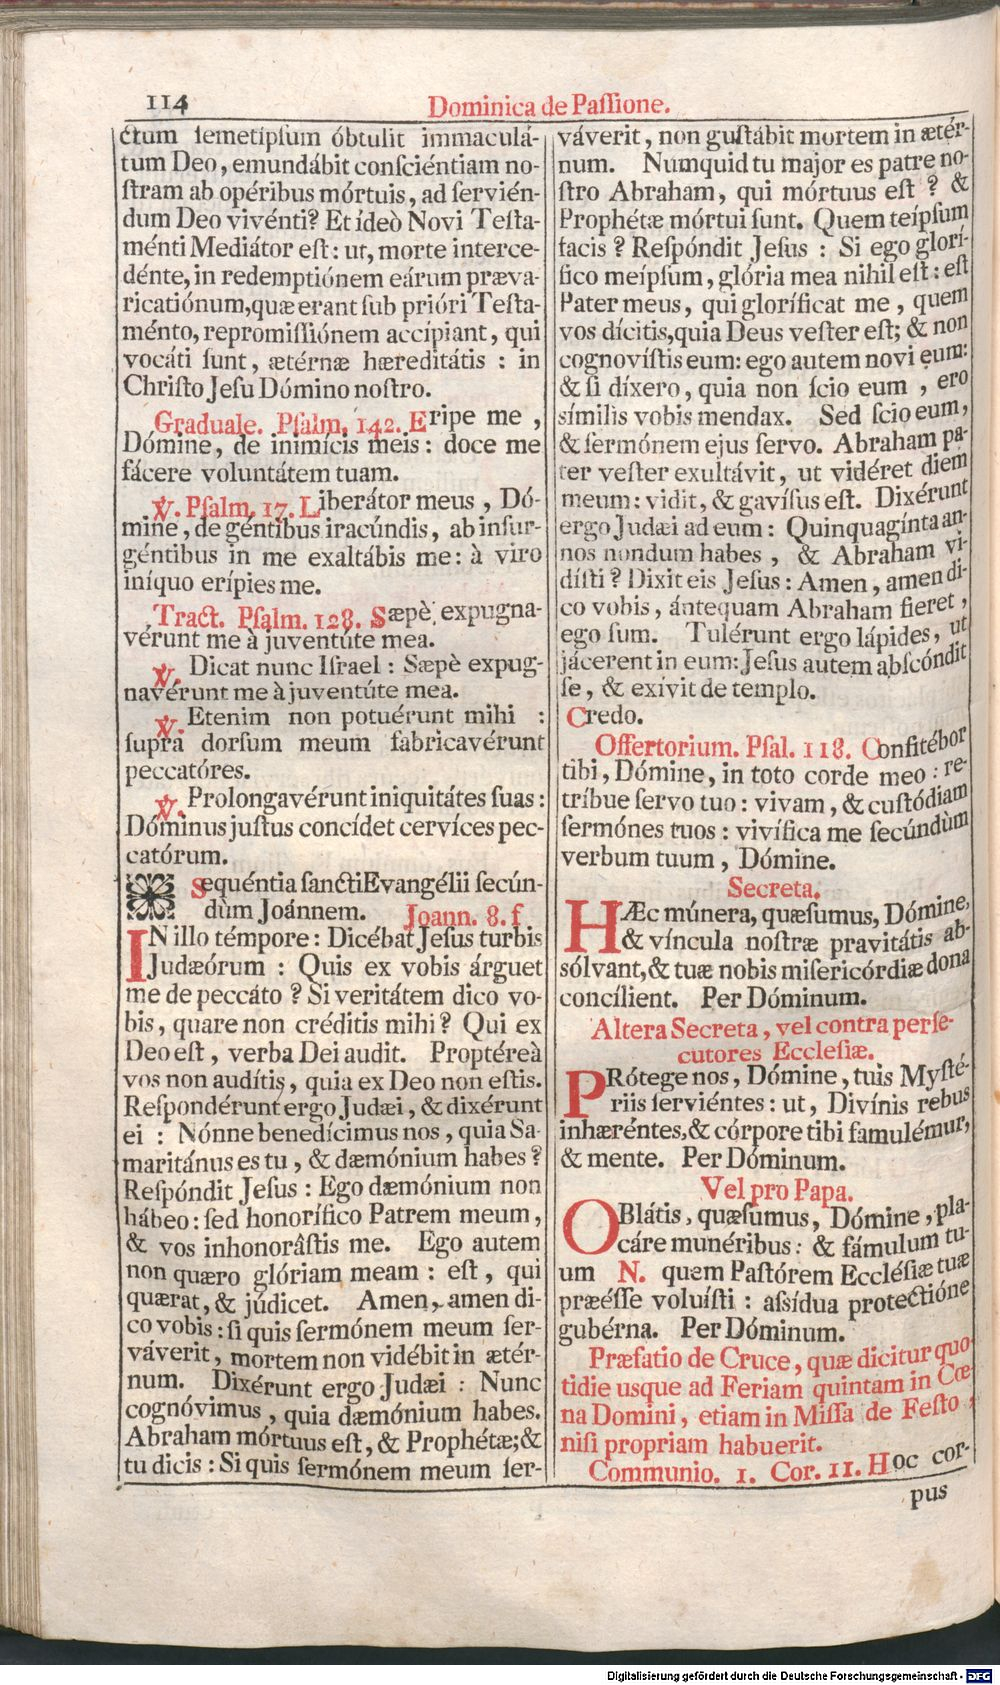 114
Dominica de Paſſione.
ctum ſemetipſum óbtulit immaculá-
tum Deo, emundábit conſciéntiam no-
ſtram ab opéribus mórtuis, ad ſervién-
dum Deo vivénti? Et ídeò Novi Teſta-
ménti Mediátor eſt: ut, morte interce-
dénte, in redemptiónem eárum præva-
ricatiónum, quæ erant ſub prióri Teſta-
ménto, repromiſſiónem accípiant, qui
vocáti ſunt, ætérnæ hæreditátis : in
Chriſto Jeſu Dómino noſtro.
Graduale. Pſalm. 142. Eripe me,
Dómine, de inimícis meis: doce me
fácere voluntátem tuam.
℣. Pſalm. 17. Liberátor meus, Dó-
mine, de géntibus iracúndis, ab inſur-
géntibus in me exaltábis me: à viro
iníquo erípies me.
Tract. Pſalm. 128. Sæpè expugna-
vérunt me à juventúte mea.
℣. Dicat nunc Iſrael : Sæpè expug-
navérunt me à juventúte mea.
℣. Etenim non potuérunt mihi :
ſupra dorſum meum fabricavérunt
peccatóres.
℣. Prolongavérunt iniquitátes ſuas:
Dóminus juſtus concídet cervíces pec-
catórum.
Sequéntia ſancti Evangélii ſecún-
dùm Joánnem. Joann. 8. f
IN illo témpore: Dicébat Jeſus turbis
Judæórum : Quis ex vobis árguet
me de peccáto ? Si veritátem dico vo-
bis, quare non créditis mihi? Qui ex
Deo eſt, verba Dei audit. Proptéreà
vos non audítis, quia ex Deo non eſtis.
Reſpondérunt ergo Judæi, & dixérunt
ei : Nónne benedícimus nos, quia Sa-
maritánus es tu, & dæmónium habes?
Reſpóndit Jeſus : Ego dæmónium non
hábeo: ſed honorífico Patrem meum,
& vos inhonorâſtis me. Ego autem
non quæro glóriam meam : eſt, qui
quærat, & júdicet. Amen, amen di-
co vobis : ſi quis ſermónem meum ſer-
váverit, mortem non vidébit in ætér-
num. Dixérunt ergo Judæi : Nunc
cognóvimus, quia dæmónium habes.
Abraham mórtuus eſt, & Prophétæ; &
tu dicis : Si quis ſermónem meum ſer-
váverit, non guſtábit mortem in ætér-
num. Numquid tu major es patre no-
ſtro Abraham, qui mórtuus eſt ? &
Prophétæ mórtui ſunt. Quem teípſum
facis ? Reſpóndit Jeſus : Si ego glorí-
fico meípſum, glória mea nihil eſt: eſt
Pater meus, qui gloríficat me, quem
vos dícitis, quia Deus veſter eſt; & non
cognovíſtis eum: ego autem novi eum:
& ſi díxero, quia non ſcio eum, ero
símilis vobis mendax. Sed ſcio eum,
& ſermónem ejus ſervo. Abraham pa-
ter veſter exultávit, ut vidéret diem
meum: vidit, & gavíſus eſt. Dixérunt
ergo Judæi ad eum: Quinquagínta an-
nos nondum habes, & Abraham vi-
díſti? Dixit eis Jeſus: Amen, amen di-
co vobis, ántequam Abraham fieret,
ego ſum. Tulérunt ergo lápides, ut
jácerent in eum: Jeſus autem abſcóndit
ſe, & exívit de templo.
Credo.
Offertorium. Pſal. 118. Confitébor
tibi, Dómine, in toto corde meo : re-
tríbue ſervo tuo: vivam, & cuſtódiam
ſermónes tuos : vivífica me ſecúndùm
verbum tuum, Dómine.
Secreta.
HÆc múnera, quæſumus, Dómine,
& víncula noſtræ pravitátis ab-
sólvant, & tuæ nobis miſericórdiæ dona
concílient. Per Dóminum.
Altera Secreta, vel contra perſe-
cutores Eccleſiæ.
PRótege nos, Dómine, tuis Myſté-
riis ſerviéntes: ut, Divínis rebus
inhæréntes, & córpore tibi famulémur,
& mente. Per Dóminum.
Vel pro Papa.
OBlátis, quæſumus, Dómine, pla-
cáre munéribus: & fámulum tu-
um N. quem Paſtórem Eccléſiæ tuæ
præéſſe voluíſti : aſſídua protectióne
gubérna. Per Dóminum.
Præfatio de Cruce, quæ dicitur quo-
tidie usque ad Feriam quintam in Cœ-
na Domini, etiam in Miſſa de Feſto,
niſi propriam habuerit.
Communio. 1. Cor. 11. Hoc cor-
pus
Digitalisierung gefördert durch die Deutsche Forschungsgemeinschaft - DFG